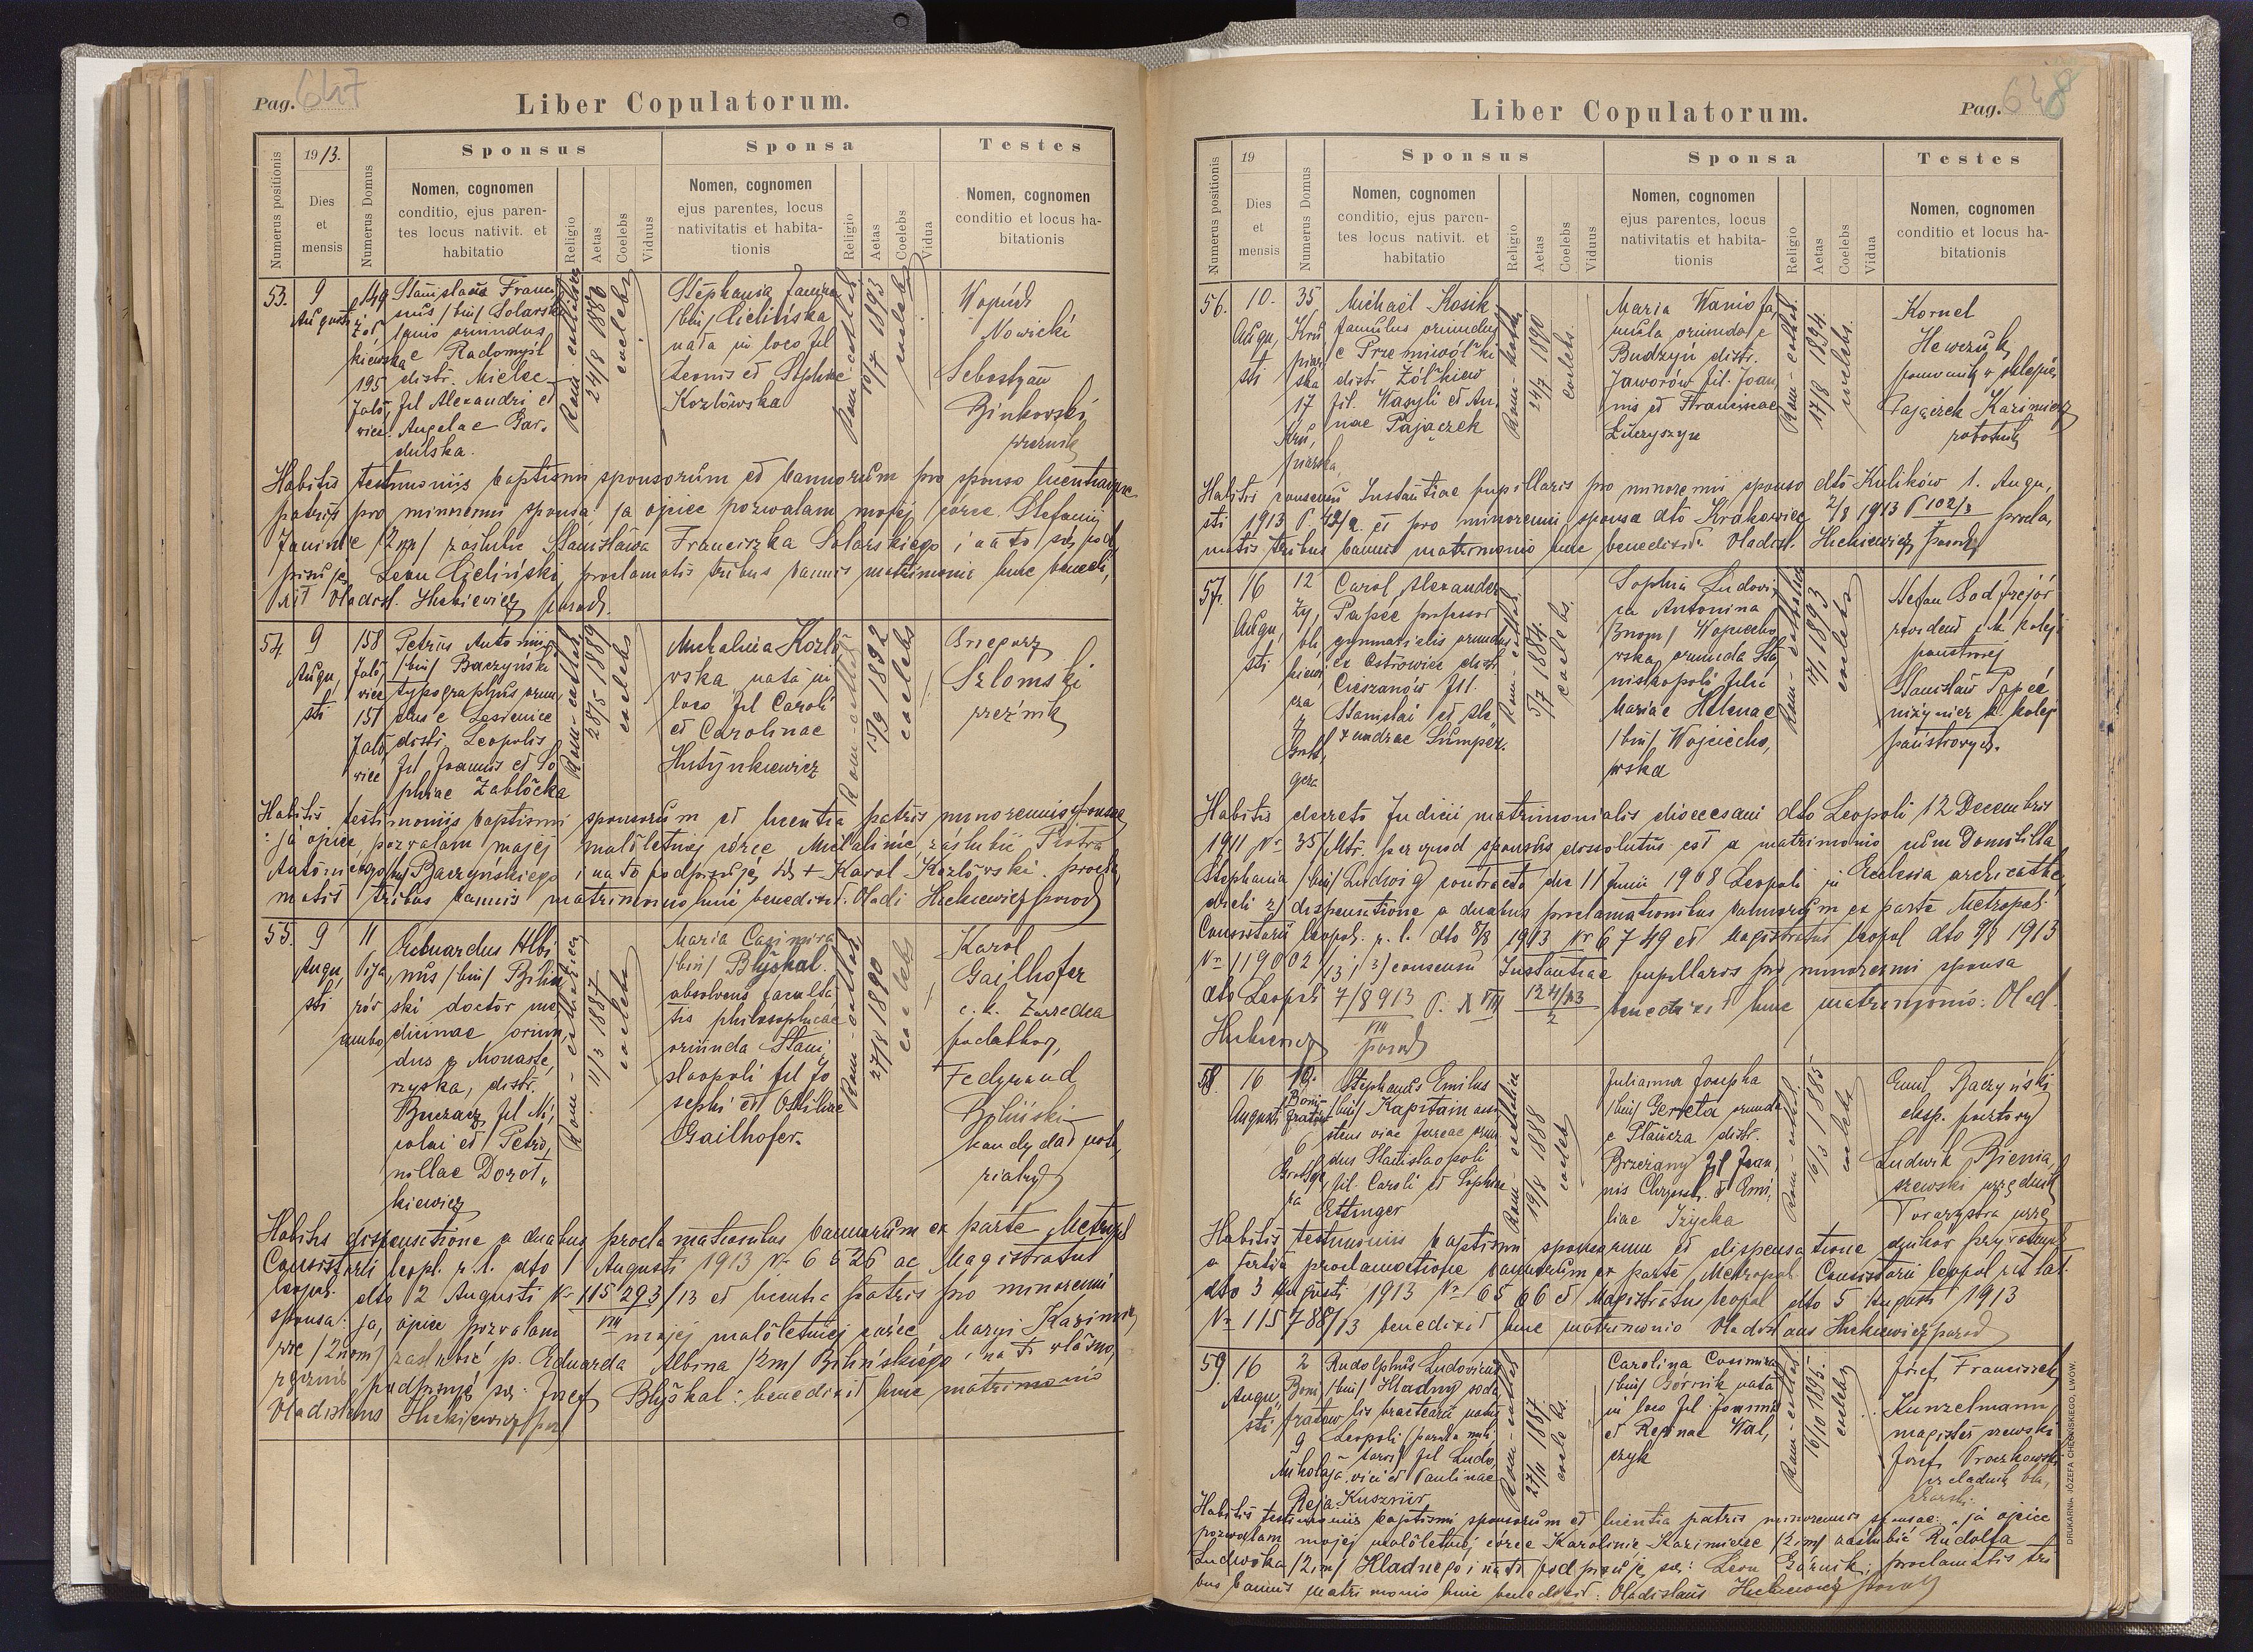 Pag. 647
Liber Copulatorum.
Numerus positionis
1913.
Dies
et
mensis
Numerus Domus
Sponsus
Nomen, cognomen
conditio, ejus paren-
tes locus nativit. et
habitatio
Religio
Aetas
Coelebs
Viduus
Sponsa
Nomen, cognomen
ejus parentes, locus
nativitatis et habita-
tionis
Religio
Aetas
Coelebs
Vidua
Testes
Nomen, cognomen
conditio et locus ha-
bitationis
53.
9
Augusti
149
195
e Radomyśl
distr. Mielec
fil Alexandri et
Angelae Gar,
dulska.
Rom-catholica
24/8 1886
coelebs
Stephania Janina
/bin/ Cielińska
nata in loco fil
Leonis et Sophiae
Kozłowska
Rom-cathol
1893
coelebs
Nowicki
Sebastyan
Binkowski
Habitis testimoniis baptismi sponsorum et bannorum pro sponso licentiaque
patris pro minorenni sponsa: ja ojciec pozwalam mojej córce Stefanii
Janinie /2 im/ zaślubić Stanisława Franciszka Solarskiego i na to się pod,
pisuję Leon Cieliński, proclamatis tribus bannis matrimonio huic benedi,
xit Vladisl. Hickiewicz
54.
9
Augu,
sti
158
Jało,
wiec
151
Jało
wiec
Petrus Antonius
/bin/ Baczyński
typographus oriun,
dus e Lesienice
distr. Leopolis
fil Joannis et So
phiae Zabłocka
Rom-cathol
28/5 1889
coelebs
Michalina Kozło
wska nata in
loco fil Caroli
et Carolinae
Hutynkiewicz
Rom-cathol
15/9 1892
coelebs
Grzegorz
Szlomski
Habitis testimoniis baptismi sponsorum et licentia patris minorennis sponsae
: ja ojciec pozwalam mojej małoletniej córce Michalinie zaślubić Piotra
Antoniego Baczyńskiego i na to podpisuję się + Karol Kozłowski. procla,
matis tribus bannis matrimonio huic benedixit. Vladi Hickiewicz
55.
9
Augu,
sti
11
Pija
rów
ambo
Eduardus Albi
nus /bin/ Biliń
ski doctor me
dicinae oriun,
dus e Monaste,
rzyska, distr.
Buczacz fil Ni,
colai et Petro,
nillae Dorot,,
kiewicz
Rom-catholica
11/3 1887
coelebs
Maria Casimira
/bin/ Błyskal
absolvens faculta
tis philosophicae
oriunda Stani,
slaopoli fil Jo
sephi et Ottiliae
Gailhofer.
Rom-cathol
27/8 1890
coelebs
Karol
Gailhofer
c. k. Zarządca
Ferdynand
Biliński
kandydat not,
ryalny
Habitis dispensatione a duabus proclamationibus bannorum ex parte Metropol
Consistorii leopl. r. l. dto 1 Augusti 1913 Nr 6526 ac Magistratus
leopol. dto 2 Augusti Nr 115293/13 et licentia patris pro minorenni
VII
sponsa: ja, ojciec pozwalam mojej małoletniej córce Maryi Kazimie,
rze /2 nom/ zaślubić p. Eduarda Albina /2 im/ Bilińskiego i na to własno,
ręcznie podpisuję się: Józef Błyskal: benedixit huic matrimonio
Vladislaus Hickiewicz
Pag. 648
Liber Copulatorum.
Numerus positionis
19
Dies
et
mensis
Numerus Domus
Sponsus
Nomen, cognomen
conditio, ejus paren-
tes locus nativit. et
habitatio
Religio
Aetas
Coelebs
Viduus
Sponsa
Nomen, cognomen
ejus parentes, locus
nativitatis et habita-
tionis
Religio
Aetas
Coelebs
Vidua
Testes
Nomen, cognomen
conditio et locus ha-
bitationis
56.
10.
Augu,
sti
35
Kru
piar
ska
17
Kru,
piarska
Michael Kosik
famulus oriundus
e Przemiwółki
distr Żółkiew
fil. Wasyli et An,
nae Pajączek
Rom-kath
24/7 1890
coelebs.
Maria Wanio fa
mula oriunda e
Budzyń distr.
Jaworów fil. Joan,
nis et Franciscae
Rom-cathol.
17/8 1894.
coelebs.
Kornel
Hewczuk
Pajączek Kazimierz
robotnik
Habitis consensu Instantiae pupillaris pro minorenni sponso dto Kulików 1. Augu,
sti 1913 P 42/2 et pro minorenni sponsa dto Krakowiec 2/8 1913 P 102/3 procla,
matis tribus bannis matrimonio huic benedixit. Vladisl. Hickiewicz
57.
16
Augu,
sti
12
Carol Alexander
Papée professor
gymnasialis oriundus
ex Ostrowiec distr
Cieszanów fil.
Stanislai et Ale,
xandrae Sumper.
5/7 1884.
coelebs.
Sophia Ludovi,
ca Antonina
/3nom/ Wojciecho
wska, oriunda Sta
nislaopoli filia
Mariae Helenae
/bin/ Wojciecho,
wska
Rom-catholica
1893
coelebs
Stefan
Stanisław Papeé
inżynier k. kolei
państwowych.
Habitis decreto Judicii matrimonialis dioecesani dto Leopoli 12 Decembris
1911 Nr 35/Mtr. per quod sponsus absolutus est a matrimonio cum Domitilla
Stephania /bin/ Ludwig contracto die 11 Junii 1908 Leopoli in Ecclesia archicathe,
drali 2/ dispensatione a duabus proclamationibus bannorum ex parte Metropol.
Consistorii leopol. r. l. dto 8/8 1913 Nr 6749 et Magistratus leopol dto 9/8 1913
Nr 119002/13; 3/ consensu Instantiae pupillaris pro minorenni sponsa
dto Leopoli 7/8 913 benedixit huic matrimonio: Vlad.
Hickiewicz
58.
16
Augusti
10.
Boni
fratów
6
Stephanus Emilus
/bin/ Kapitain assi
stens viae ferreae oriun
dus Stanislaopoli
fil. Caroli et Sophiae
Ettinger
Rom-catholica
19/8 1888
coelebs
Julianna Josepha
/bin/ Gereta oriunda
e Plaucza distr.
Brzeżany fil Joan,
nis Chrysost. et Emi,
liae Iżycka
Rom-cathol.
16/3 1885
coelebs
Emil Baczyński
eksp. pocztowy
Ludwik Bienia,
szewski urzędnik
Habitis testimoniis baptismi sponsorum et dispensatione
a tertia proclamatione bannorum ex parte Metropol. Consistorii leopol rit lat.
dto 3 Augusti 1913 Nr 6566 et Magistratus leopol dto 5 Augusti 1913
Nr 115788/13 benedixit huic matrimonio Vladislaus Hickiewicz
59.
16
Augu,,
sti
2
Boni
fratów
9
Mikołaja
Rudolphus Ludovicus
/bin/ Hladny soda
lis bractearii natus
Leopoli
fil Ludo,
vici et Paulinae
Reja-Kusznir
Rom-cathol
27/11 1887
coelebs.
Carolina Casimira
/bin/ Górnik nata
in loco fil Joannis
et Reginae Wal,
czyk
Rom-cathol
16/10 1895.
coelebs
Józef Franciszek
Kunzelmann
magister szewski
Habitis testimoniis baptismi sponsorum et licentia patris minorennis sponsae: ja ojciec
pozwalam mojej małoletniej córce Karolinie Kazimierze /2 im/ zaślubić Rudolfa
Ludwika /2 im/ Hladnego i na to podpisuję się: Leon Górnik; proclamatis tri
bus bannis matrimonio huic benedixit: Vladislaus Hickiewicz
DRUKARNIA JÓZEFA CHĘCIŃSKIEGO, LWÓW.